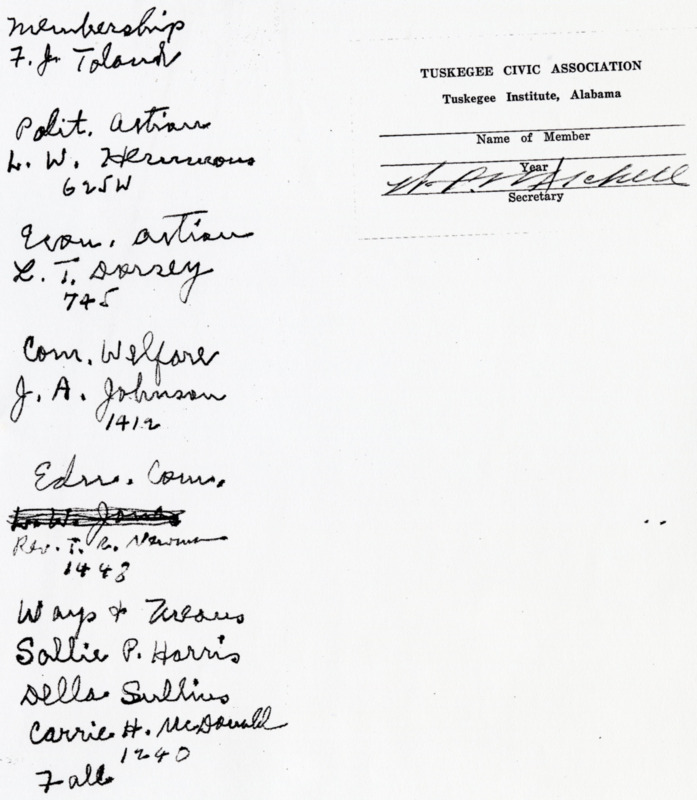 Membership
F. J. Toland
Polit. Action
L. W. Hermmons
625W
Econ. Action
L. T. Dorsey
745
Com. Welfare
J. A. Johnson
1412
Educ. Com.
L. W. Jones
Rev. T. R. Newman
1448
Ways & Means
Sallie P. Harris
Della Sullins
Carrie H. McDonald
1240
Fall
TUSKEGEE CIVIC ASSOCIATION
Tuskegee Institute, Alabama
Name of Member
Year
W. P. Mitchell
Secretary